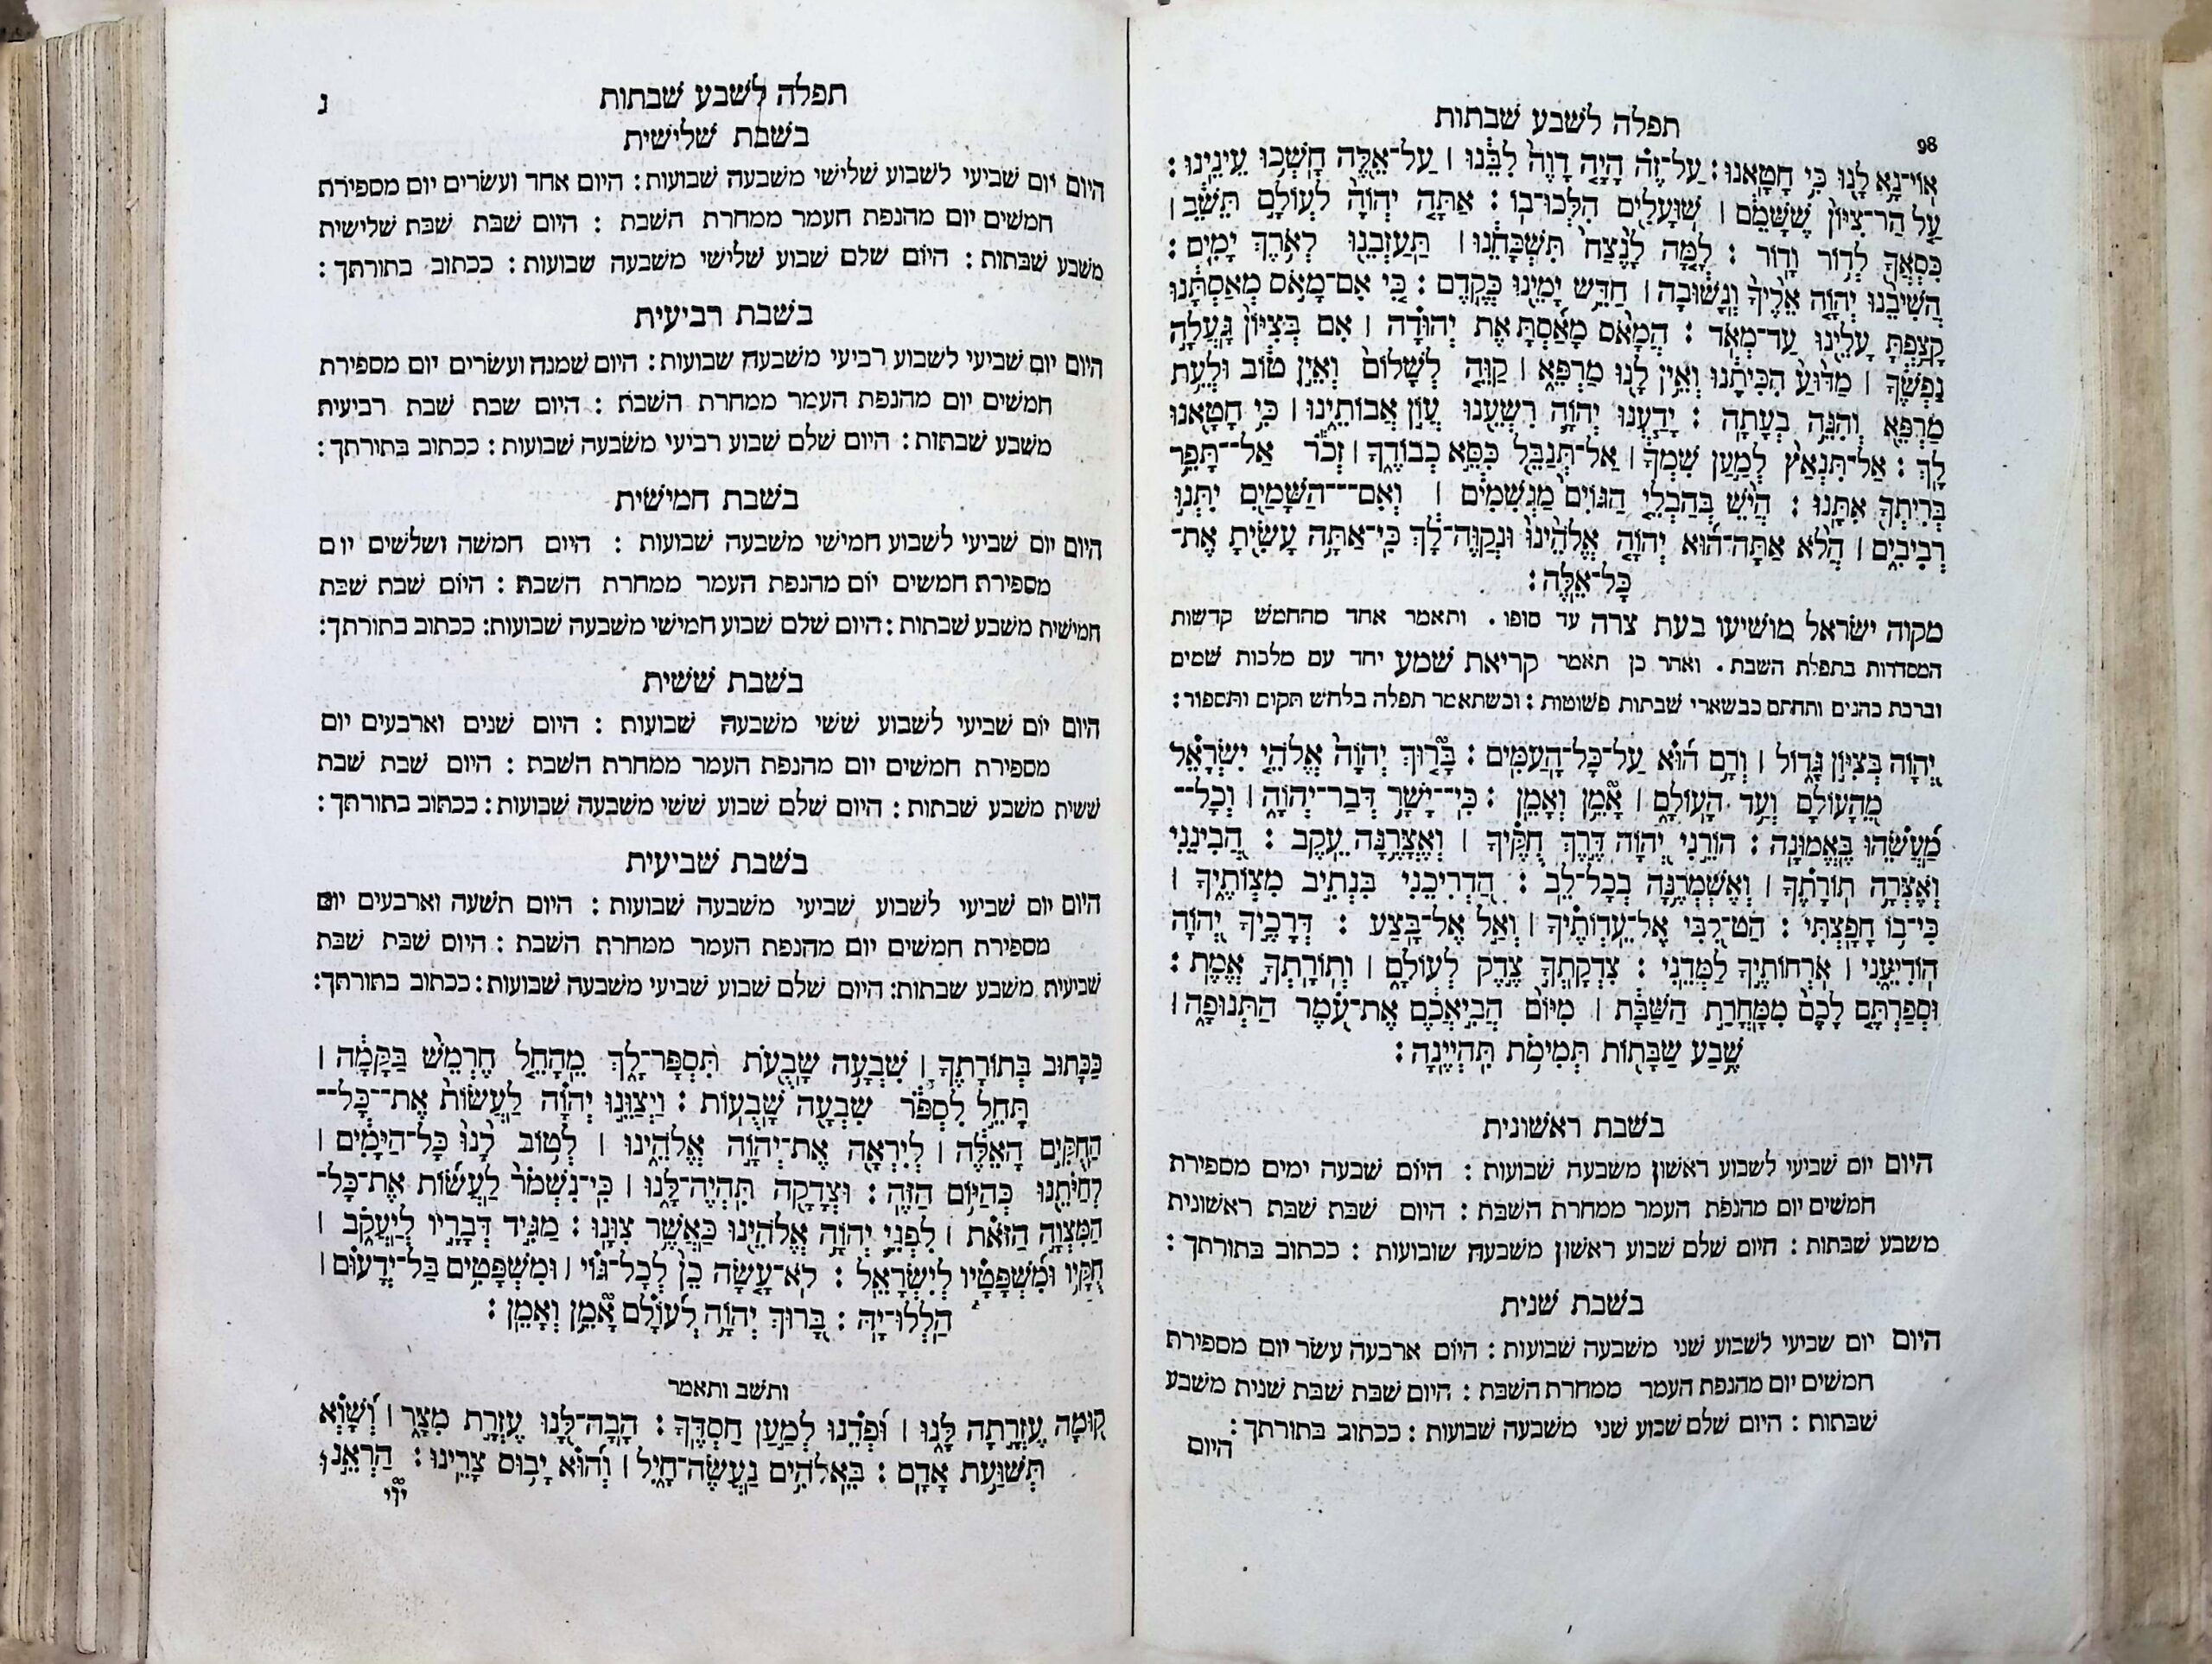 98
תפלה לשבע שבתות
אֽוֹי־נָ֥א לָ֖נוּ כִּ֥י חָטָֽאנוּ׃ עַל־זֶ֗ה הָיָ֤ה דָוֶה֙ לִבֵּ֔נוּ ׀ עַל־אֵ֖לֶּה חָשְׁכ֥וּ עֵינֵֽינוּ׃
עַ֤ל הַר־צִיּוֹן֙ שֶׁשָּׁמֵ֔ם ׀ שׁוּעָלִ֖ים הִלְּכוּ־בֽוֹ׃ אַתָּ֤ה יְהוָה֙ לְעוֹלָ֣ם תֵּשֵׁ֔ב ׀
כִּסְאֲךָ֖ לְד֥וֹר וָדֽוֹר׃ לָ֤מָּה לָנֶ֙צַח֙ תִּשְׁכָּחֵ֔נוּ ׀ תַּֽעַזְבֵ֖נוּ לְאֹ֥רֶךְ יָמִֽים׃
הֲשִׁיבֵ֨נוּ יְהוָ֤ה אֵלֶ֙יךָ֙ וְֽנָשׁ֔וּבָה ׀ חַדֵּ֥שׁ יָמֵ֖ינוּ כְּקֶֽדֶם׃ כִּ֚י אִם־מָאֹ֣ס מְאַסְתָּ֔נוּ
קָצַ֥פְתָּ עָלֵ֖ינוּ עַד־מְאֹֽד׃ הֲמָאֹ֨ס מָאַ֜סְתָּ אֶת יְהוּדָ֗ה ׀ אִם בְּצִיּוֹן֙ גָּעֲלָ֣ה
נַפְשֶׁ֔ךָ ׀ מַדּ֙וּעַ֙ הִכִּיתָ֔נוּ וְאֵ֥ין לָ֖נוּ מַרְפֵּ֑א ׀ קַוֵּ֤ה לְשָׁלוֹם֙ וְאֵ֣ין ט֔וֹב וּלְעֵ֥ת
מַרְפֵּ֖א וְהִנֵּ֥ה בְעָתָֽה׃ יָדַ֧עְנוּ יְהוָ֛ה רִשְׁעֵ֖נוּ עֲוֺ֣ן אֲבוֹתֵ֑ינוּ ׀ כִּ֥י חָטָ֖אנוּ
לָֽךְ׃ אַל־תִּנְאַץ֙ לְמַ֣עַן שִׁמְךָ֔ ׀ אַל־תְּנַבֵּ֖ל כִּסֵּ֣א כְבוֹדֶ֑ךָ ׀ זְכֹ֕ר אַל־תָּפֵ֥ר
בְּרִֽיתְךָ֖ אִתָּֽנוּ׃ הֲיֵ֨שׁ בְּהַבְלֵ֤י הַגּוֹיִם֙ מַגְשִׁמִ֔ים ׀ וְאִם־־־הַשָּׁמַ֖יִם יִתְּנ֣וּ
רְבִבִ֑ים ׀ הֲלֹ֨א אַתָּה־ה֜וּא יְהוָ֤ה אֱלֹהֵ֙ינוּ֙ וּנְקַוֶּה־לָּ֔ךְ כִּֽי־אַתָּ֥ה עָשִׂ֖יתָ אֶת־
כָּל־אֵֽלֶּה׃
מקוה ישראל מושיעו בעת צרה עד סופו. ותאמר אחד מהחמש קדשות
המסדרות בתפלת השבת. ואחר כן תאמר קריאת שמע יחד עם מלכות שמים
וברכת כהנים ותחתם כבשארי שבתות פשוטות: וכשתאמר תפלה בלחש תקום ותספור:
יְ֭הוָה בְּצִיּ֣וֹן גָּד֑וֹל ׀ וְרָ֥ם ה֝֗וּא עַל־כָּל־הָֽעַמִּֽים׃ בָּ֘ר֤וּךְ יְהוָ֨ה אֱלֹ֘הֵ֤י יִשְׂרָאֵ֗ל
מֵֽ֭הָעוֹלָם וְעַ֥ד הָעוֹלָ֗ם ׀ אָ֘מֵ֥ן וְאָמֵֽן׃ כִּֽי־־יָשָׁ֥ר דְּבַר־יְהוָ֑ה ׀ וְכָל־־
מַ֝עֲשֵׂ֗הוּ בֶּאֱמוּנָֽה׃ הוֹרֵ֣נִי יְ֭הוָה דֶּ֥רֶךְ חֻקֶּ֗יךָ ׀ וְאֶצְּרֶ֥נָּה עֵֽקֶב׃ הֲ֭בִינֵנִי
וְאֶצְּרָ֥ה תֽוֹרָתֶ֗ךָ ׀ וְאֶשְׁמְרֶ֥נָּה בְכָל־לֵֽב׃ הַ֭דְרִיכֵנִי בִּנְתִ֣יב מִצְוֺתֶ֑יךָ ׀
כִּי־ב֥וֹ חָפָֽצְתִּי׃ הַט־לִ֭בִּי אֶל־עֵדְוֺתֶ֗יךָ ׀ וְאַ֣ל אֶל־בָּֽצַע׃ דְּרָכֶ֣יךָ יְ֭הוָה
הוֹדִיעֵ֑נִי ׀ אֹ֖רְחוֹתֶ֣יךָ לַמְּדֵֽנִי׃ צִדְקָתְךָ֣ צֶ֣דֶק לְעוֹלָ֑ם ׀ וְֽתוֹרָתְךָ֥ אֱמֶֽת׃
וּסְפַרְתֶּ֤ם לָכֶם֙ מִמָּחֳרַ֣ת הַשַּׁבָּ֔ת ׀ מִיּוֹם֙ הֲבִ֣יאֲכֶ֔ם אֶת־עֹ֖מֶר הַתְּנוּפָ֑ה ׀
שֶׁ֥בַע שַׁבָּת֖וֹת תְּמִימֹ֥ת תִּהְיֶֽינָה׃
בשבת ראשונית
היום יום שביעי לשבוע ראשון משבעה שבועות: היום שבעה ימים מספירת
חמשים יום מהנפת העמר ממחרת השבת: היום שבת שבת ראשונית
משבע שבתות: היום שלם שבוע ראשון משבעה שובועות: ככתוב בתורתך:
בשבת שנית
היום יום שביעי לשבוע שני משבעה שבועות: היום ארבעה עשר יום מספירת
חמשים יום מהנפת העמר ממחרת השבת: היום שבת שבת שנית משבע
שבתות: היום שלם שבוע שני משבעה שבועות: ככתוב בתורתך:
היום
תפלה לשבע שבתות
נ
בשבת שלישית
היום יום שביעי לשבוע שלישי משבעה שבועות: היום אחד ועשרים יום מספירת
חמשים יום מהנפת העמר ממחרת השבת: היום שבת שבת שלישית
משבע שבתות: היום שלם שבוע שלישי משבעה שבועות: ככתוב בתורתך:
בשבת רביעית
היום יום שביעי לשבוע רביעי משבעה שבועות: היום שמנה ועשרים יום מספירת
חמשים יום מהנפת העמר ממחרת השבת: היום שבת שבת רביעית
משבע שבתות: היום שלם שבוע רביעי משבעה שבועות: ככתוב בתורתך:
בשבת חמישית
היום יום שביעי לשבוע חמישי משבעה שבועות: היום חמשה ושלשים יום
מספירת חמשים יום מהנפת העמר ממחרת השבת: היום שבת שבת
חמישית משבע שבתות: היום שלם שבוע חמישי משבעה שבועות: ככתוב בתורתך:
בשבת ששית
היום יום שביעי לשבוע ששי משבעה שבועות: היום שנים וארבעים יום
מספירת חמשים יום מהנפת העמר ממחרת השבת: היום שבת שבת
ששית משבע שבתות: היום שלם שבוע ששי משבעה שבועות: ככתוב בתורתך:
בשבת שביעית
היום יום שביעי לשבוע שביעי משבעה שבועות: היום תשעה וארבעים יום
מספירת חמשים יום מהנפת העמר ממחרת השבת: היום שבת שבת
שביעית משבע שבתות: היום שלם שבוע שביעי משבעה שבועות: ככתוב בתורתך:
כַּכָּתוּב בְּתוֹרָתֶךָ ׀ שִׁבְעָ֥ה שָׁבֻעֹ֖ת תִּסְפָּר־לָ֑ךְ מֵהָחֵ֤ל חֶרְמֵשׁ֙ בַּקָּמָ֔ה ׀
תָּחֵ֣ל לִסְפֹּ֔ר שִׁבְעָ֖ה שָׁבֻעֽוֹת׃ וַיְצַוֵּ֣נוּ יְהוָ֗ה לַעֲשׂוֹת֙ אֶת־־כָּל־־
הַחֻקִּ֣ים הָאֵ֔לֶּה ׀ לְיִרְאָ֖ה אֶת־יְהוָ֣ה אֱלֹהֵ֑ינוּ ׀ לְט֥וֹב לָ֙נוּ֙ כָּל־הַיָּמִ֔ים ׀
לְחַיֹּתֵ֖נוּ כְּהַיּ֥וֹם הַזֶּֽה׃ וּצְדָקָ֖ה תִּֽהְיֶה־לָּ֑נוּ ׀ כִּֽי־נִשְׁמֹ֨ר לַעֲשׂ֜וֹת אֶת־כָּל־
הַמִּצְוָ֣ה הַזֹּ֗את ׀ לִפְנֵ֛י יְהוָ֥ה אֱלֹהֵ֖ינוּ כַּאֲשֶׁ֥ר צִוָּֽנוּ׃ מַגִּ֣יד דְּבָרָ֣יו לְיַעֲקֹ֑ב ׀
חֻקָּ֥יו וּ֝מִשְׁפָּטָ֗יו לְיִשְׂרָאֵֽל׃ לֹ֘א־עָ֤שָׂה כֵ֨ן לְכָל־גּ֗וֹי ׀ וּמִשְׁפָּטִ֥ים בַּל־יְדָע֗וּם ׀
הַֽלְלוּ־יָֽהּ׃ בָּר֖וּךְ יְהוָ֥ה לְ֝עוֹלָ֗ם אָ֘מֵ֥ן וְאָמֵֽן׃
ותשב ותאמר
ק֭וּמָֽה עֶזְרָ֣תָה לָּ֑נוּ ׀ וּ֝פְדֵ֗נוּ לְמַ֣עַן חַסְדֶּֽךָ׃ הָֽבָה־לָּ֣נוּ עֶזְרָ֣ת מִצָּ֑ר ׀ וְ֝שָׁ֗וְא
תְּשׁוּעַ֥ת אָדָֽם׃ בֵּֽאלֹהִ֥ים נַעֲשֶׂה־חָ֑יִל ׀ וְ֝ה֗וּא יָב֥וּס צָרֵֽינוּ׃ הַרְאֵ֣נוּ
ייי